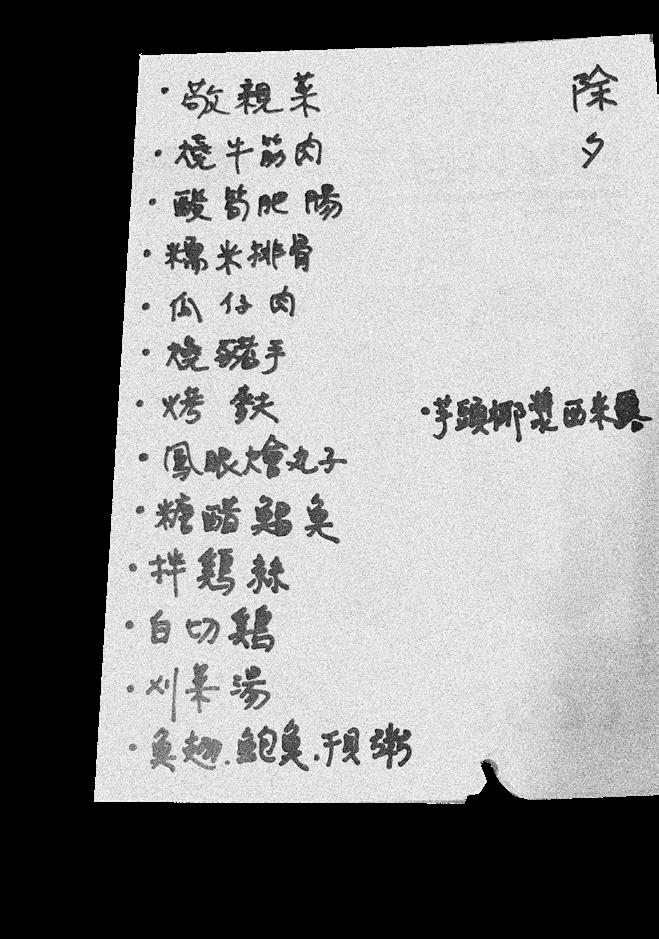 除夕
·敬親菜
·燒牛筋肉
·酸筍肥腸
·糯米排骨
·瓜仔肉
·燒豬手
·烤麩
·鳳眼燴丸子
·糖醋鯧魚
·拌雞絲
·白切鷄
·刈菜湯
·魚翅.鮑魚.干貝粥
·芋頭椰漿西米露